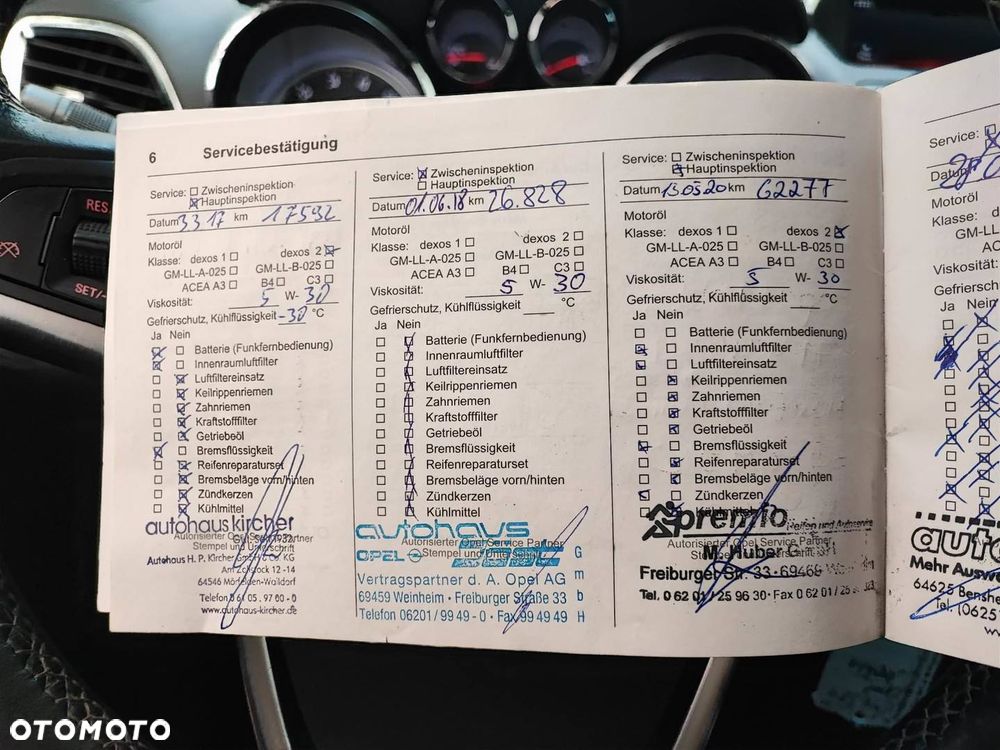 RES
SET/-
6 Servicebestätigung
Service: Zwischeninspektion
Hauptinspektion
Datum 3317 km 17592
Motoröl
Klasse: dexos 1 dexos 2
GM-LL-A-025 GM-LL-B-025
ACEA A3 B4 C3
Viskosität: 5 W- 30
Gefrierschutz, Kühlflüssigkeit -30 °C
Ja Nein
Batterie (Funkfernbedienung)
Innenraumluftfilter
Luftfiltereinsatz
Keilrippenriemen
Zahnriemen
Kraftstofffilter
Getriebeöl
Bremsflüssigkeit
Reifenreparaturset
Bremsbeläge vorn/hinten
Zündkerzen
Kühlmittel
autohaus kircher
Autorisierter Opel Service Partner
Stempel und Unterschrift
Autohaus H. P. Kircher KG
12-14
64546 Mörfelden-Walldorf
Telefon 0 61 05. 97 00 - 0
www.autohaus-kircher.de
Service: Zwischeninspektion
Hauptinspektion
Datum 01.06.18 km 26.828
Motoröl
Klasse: dexos 1 dexos 2
GM-LL-A-025 GM-LL-B-025
ACEA A3 B4 C3
Viskosität: 5 W- 30
Gefrierschutz, Kühlflüssigkeit °C
Ja Nein
Batterie (Funkfernbedienung)
Innenraumluftfilter
Luftfiltereinsatz
Keilrippenriemen
Zahnriemen
Kraftstofffilter
Getriebeöl
Bremsflüssigkeit
Reifenreparaturset
Bremsbeläge vorn/hinten
Zündkerzen
Kühlmittel
autohaus
Autorisierter Opel Service Partner
OPEL
Stempel und Unterschrift
GmbH
Vertragspartner d. A. Opel AG
69459 Weinheim · Freiburger Straße 33
Telefon 06201/99 49 - 0 · Fax 99 49 49
Service: Zwischeninspektion
Hauptinspektion
Datum 130520 km 62277
Motoröl
Klasse: dexos 1 dexos 2
GM-LL-A-025 GM-LL-B-025
ACEA A3 B4 C3
Viskosität: 5 W- 30
Gefrierschutz, Kühlflüssigkeit °C
Ja Nein
Batterie (Funkfernbedienung)
Innenraumluftfilter
Luftfiltereinsatz
Keilrippenriemen
Zahnriemen
Kraftstofffilter
Getriebeöl
Bremsflüssigkeit
Reifenreparaturset
Bremsbeläge vorn/hinten
Zündkerzen
Kühlmittel
premio
Reifen und Autoservice
Autorisierter Opel Service Partner
Stempel und Unterschrift
M. Huber
Freiburger Str. 33 · 69469
Tel. 0 62 01 / 25 96 30 · Fax 0 62 01 / 25
Service:
Datum
Motoröl
Klasse:
GM-LL
Viskosität
Gefriersch
Ja Nein
auto
Mehr Auswa
64625 Benshe
Tel. (0625
OTOMOTO